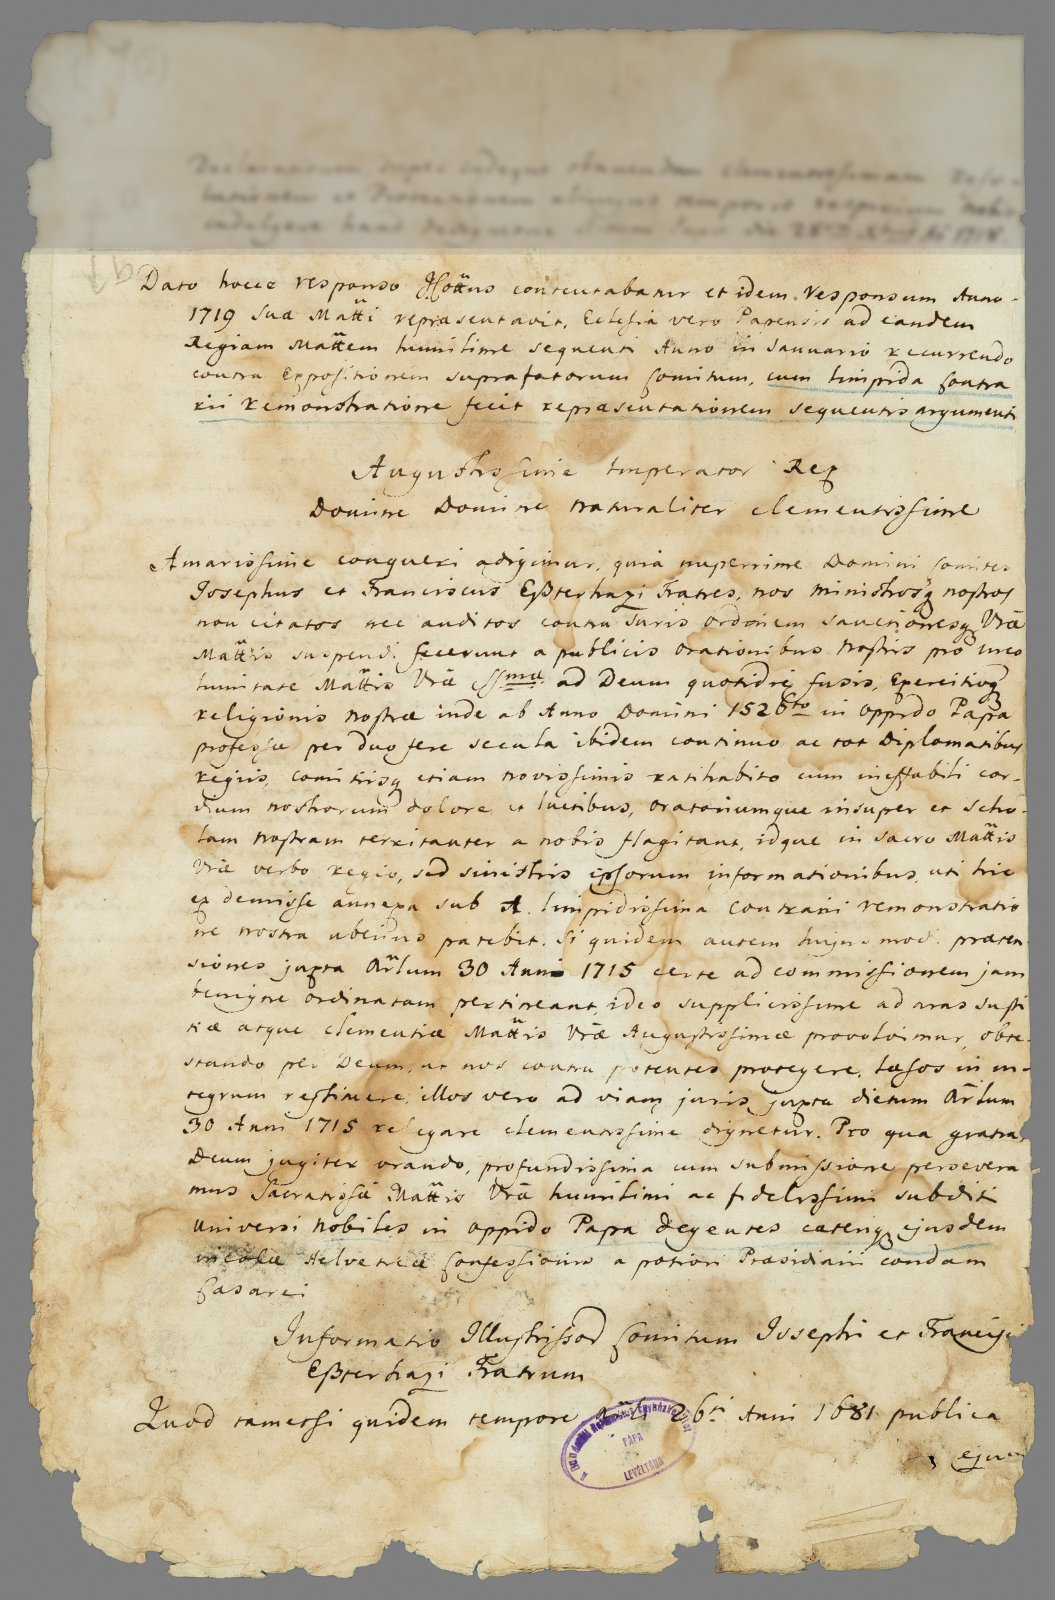 Dato hocce responso Hottus contentabatur et idem Responsum Anno
1719 suæ Matti repræsentavit, Eclesia vero Papensis ad eandem
Regiam Mattem humilime sequenti Anno in Januario recurrendo
contra Expositionem suprafatorum Comitum, cum limpida Contra
rii remonstratione fecit repræsentationem sequentis argumenti
Augustissime Imperator Rex
Domine Domine naturaliter clementissime
Amarissime conqueri adigimur, quia nuperrime Domini Comites
Josephus et Franciscus Eszterhazi Fratres, nos Ministrosq nostros
non citatos nec auditos contra Juris ordinem sanctionesq Vræ
Mattis suspendi fecerunt a publicis orationibus nostris pro inco
lumitate Mattis Vræ ssmæ ad Deum quotidie fusis, Exercitioq
religionis nostræ inde ab Anno Domini 1526to in oppido Papa
professæ per duo fere secula ibidem continuo ac tot Diplomatibus
regiis, Comitiisq etiam novissimis ratihabito cum ineffabili cor-
dium nostrorum dolore et luctibus, oratoriumque insuper et scho-
lam nostram territanter a nobis flagitant, idque in sacro Mattis
Vræ verbo regio, sed sinistris ipsorum informationibus, uti hic
ex demisse annexa sub A. limpidissima contrarii remonstratio
ne nostra uberius patebit. Si quidem autem hujusmodi præten-
siones juxta Arlum 30 Anni 1715 certe ad commissionem jam
benigne ordinatam pertineant, ideo supplicissime ad aras Justi
tiæ atque clementiæ Mattis Vræ Augustissimæ provolvimur, obte-
stando per Deum, ut nos contra potentes protegere, læsos in in-
tegrum restituere, illos vero ad viam juris juxta dictum Arlum
30 Anni 1715 relegare clementissime dignetur. Pro qua gratia
Deum jugiter orando, profundissima cum submissione persevera
mus Sacratissæ Mattis Vræ humilimi ac fidelissimi subditi
universi nobiles in oppido Papa degentes cæteriq ejusdem
incolæ Helveticæ Confessionis a potiori Præsidiarii condam
Casarei
Informatio Illustrissor Comitum Josephi et Francisci
Eszterhazi Fratrum
Quod tametsi quidem tempore 26ti Anni 1681 publica
PÁPA
LEVÉLTÁRA